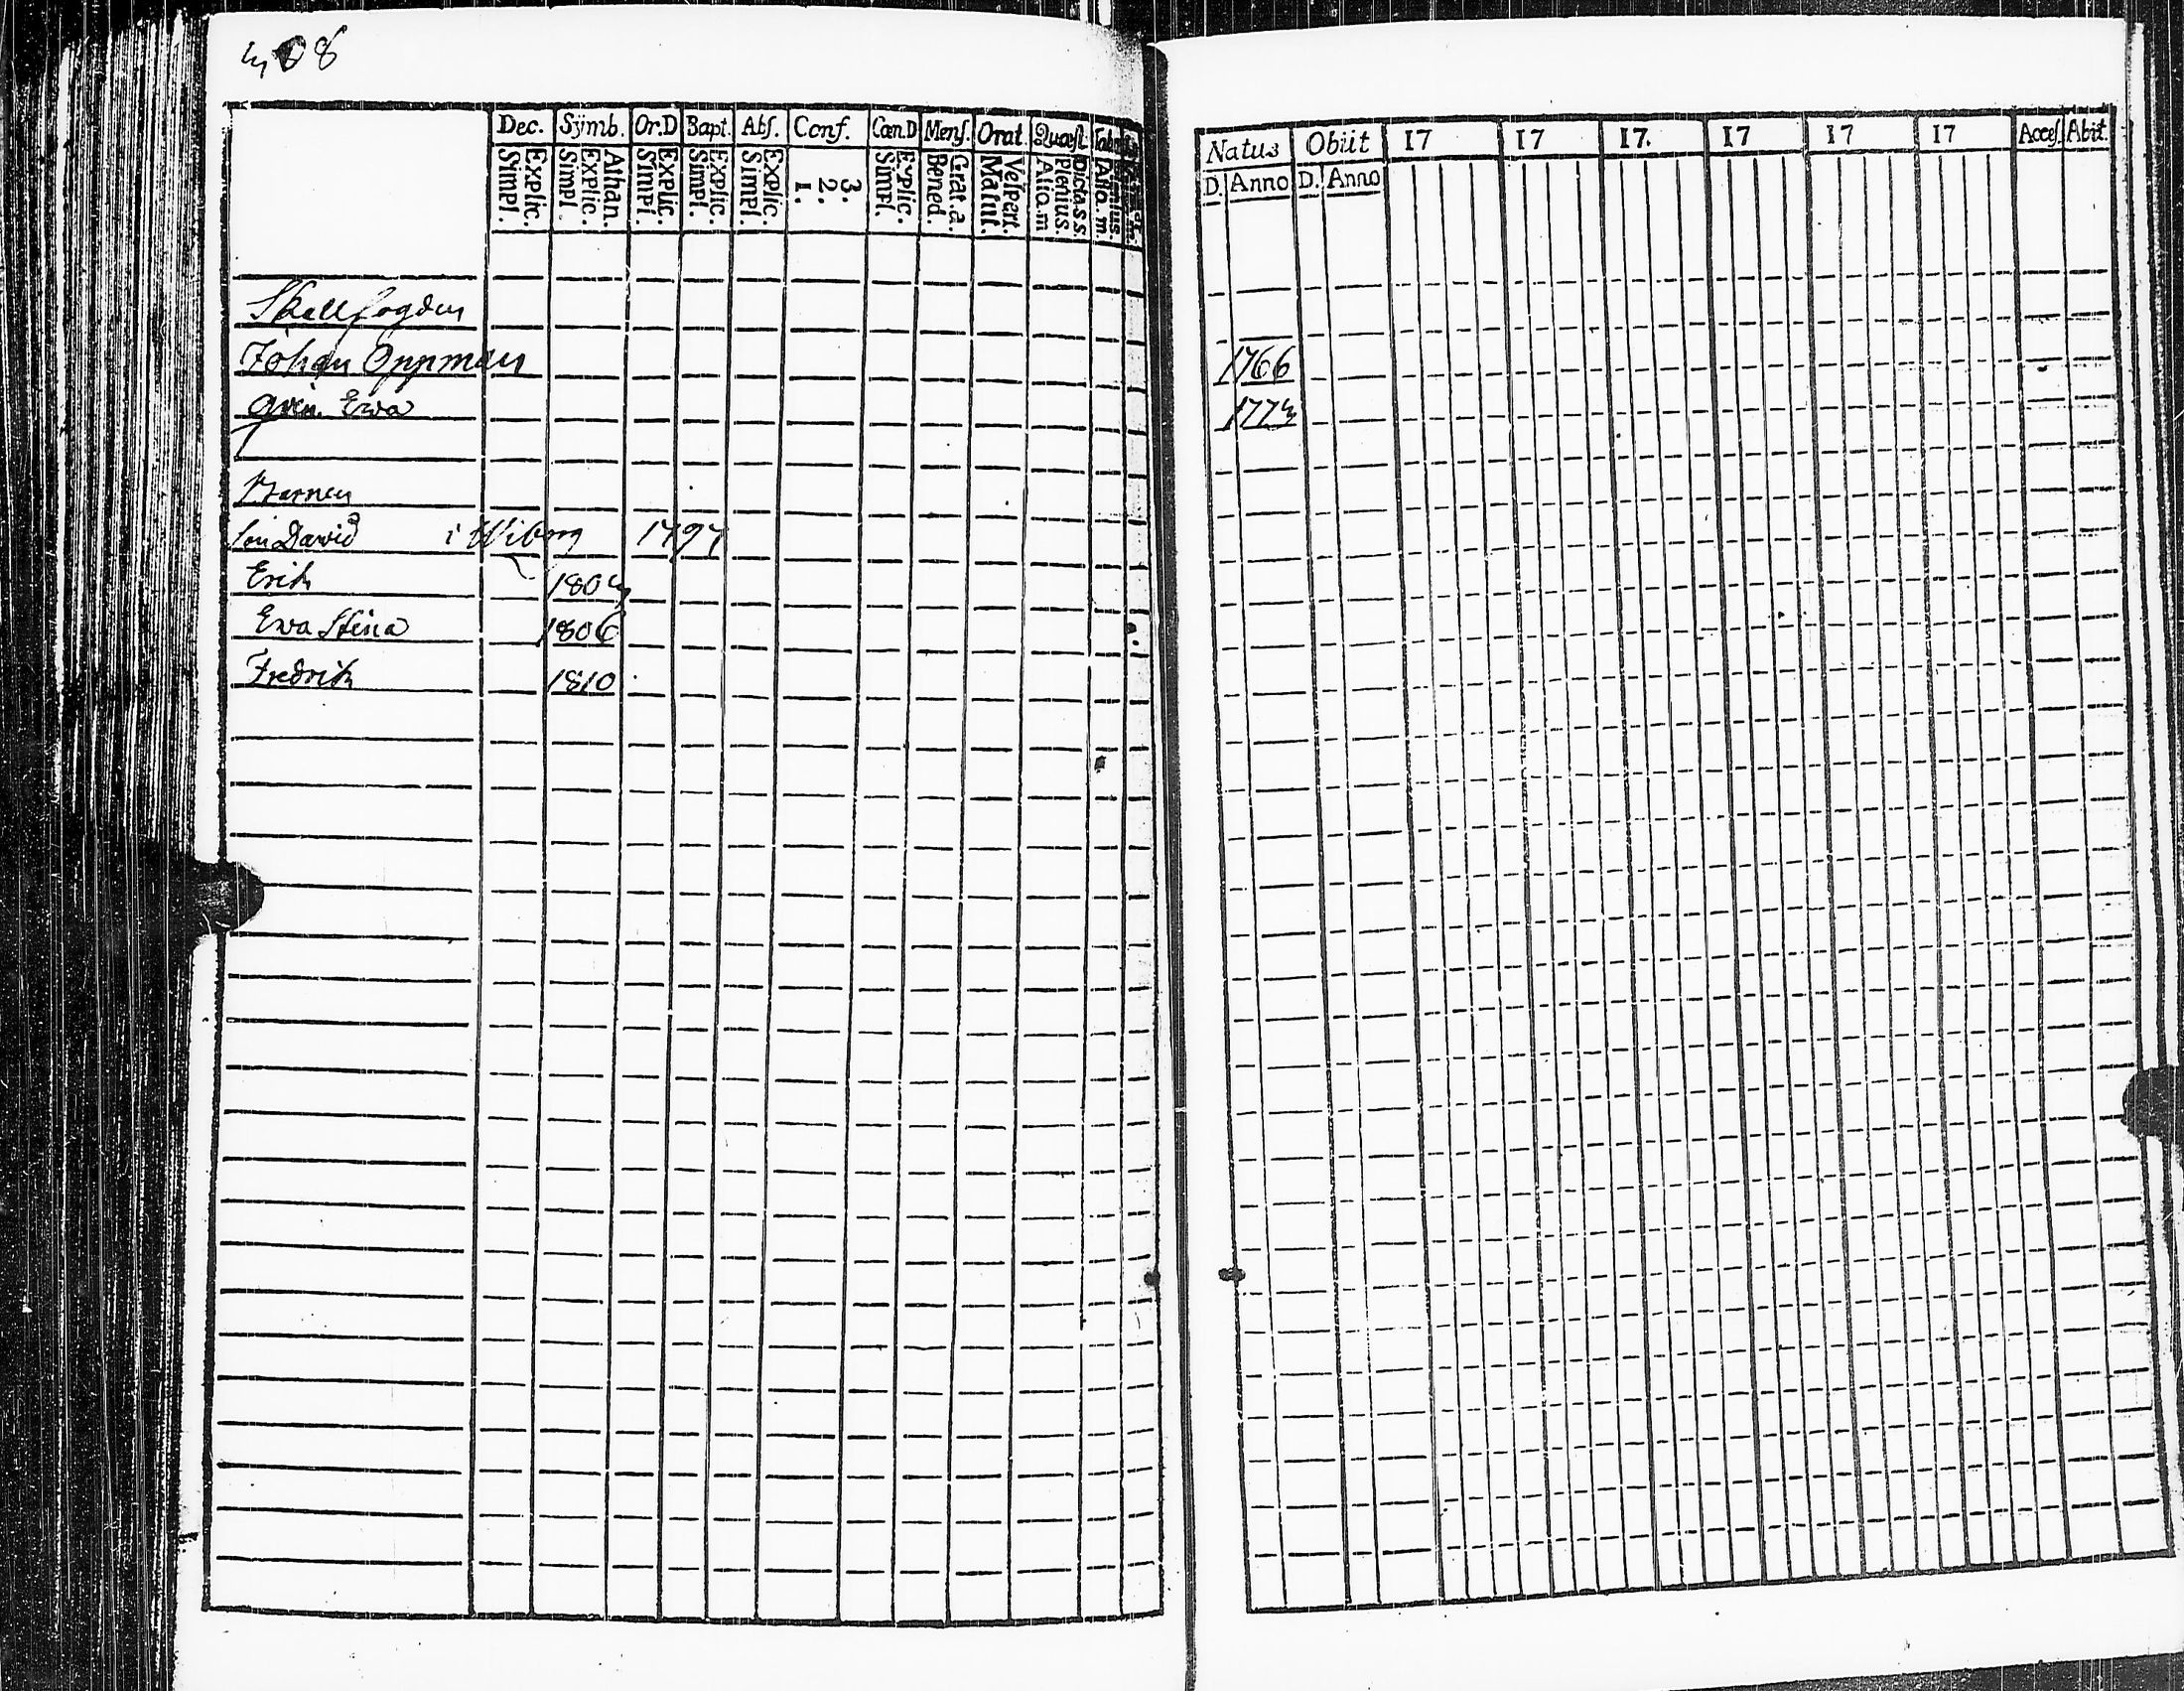 408
Dec. Symb. Or.D Bapt. Abs. Conf. Cœn.D Mens. Orat. Quæst.
Explic. Simpl. Athan. Explic. Simpl. Explic. Simpl. Explic. Simpl. Explic. Simpl. 3. 2. 1. Explic. Simpl. Grat. a. Bened. Vespert. Matut. Dicta s.s. Plenius. Aliq.m
Natus Obiit 17 17 17. 17 17 17 Acces. Abit.
D. Anno D. Anno
Skallfogden
Johan Oppman 1766
Qvin. Ewa 1773
Barnen
son David i Wiborg 1797
Erik 1804
Ewa Stina 1806
Fredrik 1810